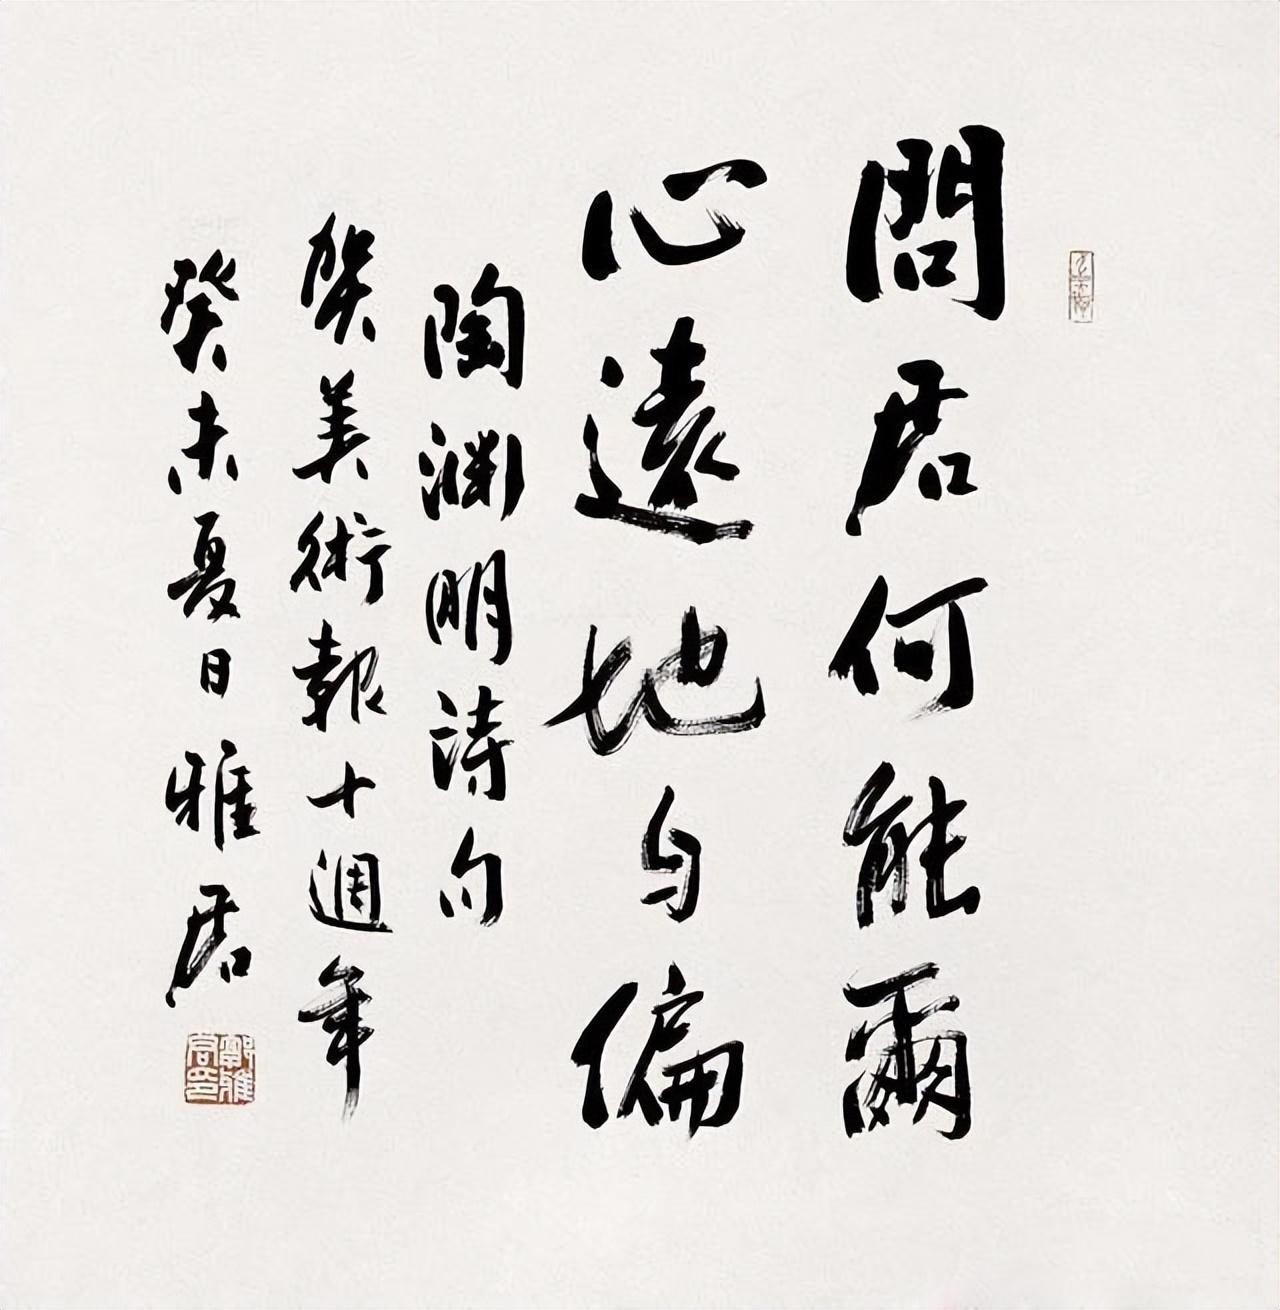 問君何能爾
心遠地自偏
陶淵明詩句
賀美術報十週年
癸未夏日雅君
鄭雅君印